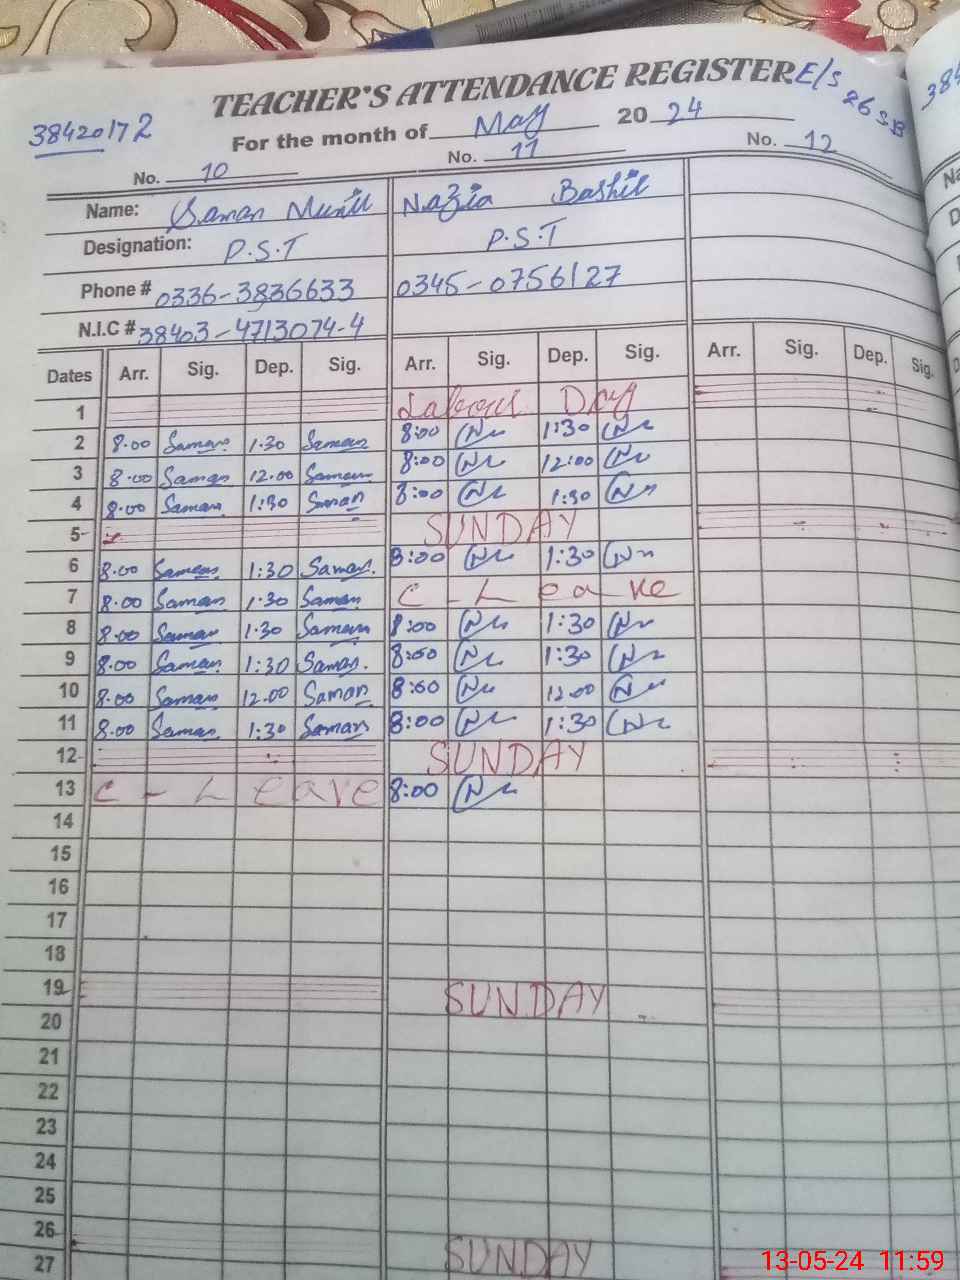 TEACHER'S ATTENDANCE REGISTER E/S 26 SB
38420172
For the month of May 2024
No. 10 No. 11 No. 12
Name: Saman Munir Nazia Bashir
Designation: P.S.T P.S.T
Phone # 0336-3836633 0345-0756127
N.I.C # 38403-4713074-4
Dates Arr. Sig. Dep. Sig. Arr. Sig. Dep. Sig. Arr. Sig. Dep. Sig.
1 Labour Day
2 8.00 Saman 1.30 Saman 8:00 1:30
3 8.00 Saman 12.00 Saman 8:00 12:00
4 8.00 Saman 1:30 Sman 8:00 1:30
5 SUNDAY
6 8.00 Saman 1:30 Saman. 8:00 1:30
7 8.00 Saman 1.30 Saman C-Leave
8 8.00 Saman 1.30 Saman 8:00 1:30
9 8.00 Saman 1:30 Saman. 8:00 1:30
10 8.00 Saman 12.00 Saman 8:00 12.00
11 8.00 Saman 1:30 Saman 8:00 1:30
12 SUNDAY
13 C-Leave 8:00
14
15
16
17
18
19 SUNDAY
20
21
22
23
24
25
26 SUNDAY
27
13-05-24 11:59